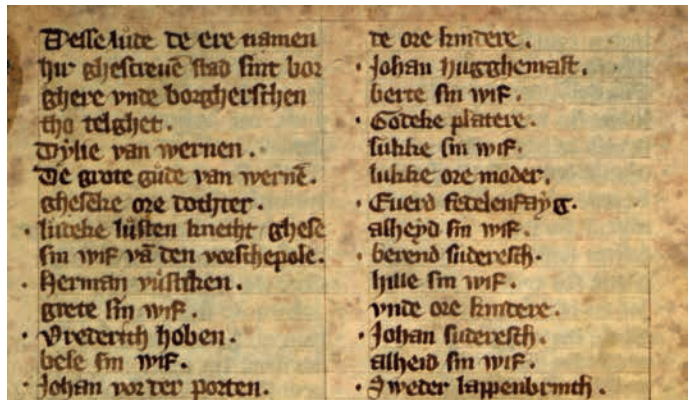 Desse lude de ere namen
hir ghescreuē stad sint bor
ghere vnde borgherschen
tho telghet.
Dylie van wernen.
De grote gůde van wernē.
gheseke ore dochter.
· ludeke lůsten knecht ghese
sin wif vā den vorschepole.
· Herman vůstiken.
grete sin wif.
· Vrederich hoben.
bele sin wif.
· Johan vor der porten.
de ore kindere.
· Johan hugghemast.
berte sin wif.
· Godeke platere.
lukke sin wif.
lukke ore moder.
· Euerd
alheyd sin wif.
· berend suderesch.
hille sin wif.
vnde ore kindere.
· Johan suderesch.
alheid sin wif.
· Sweder lappenbrinch.